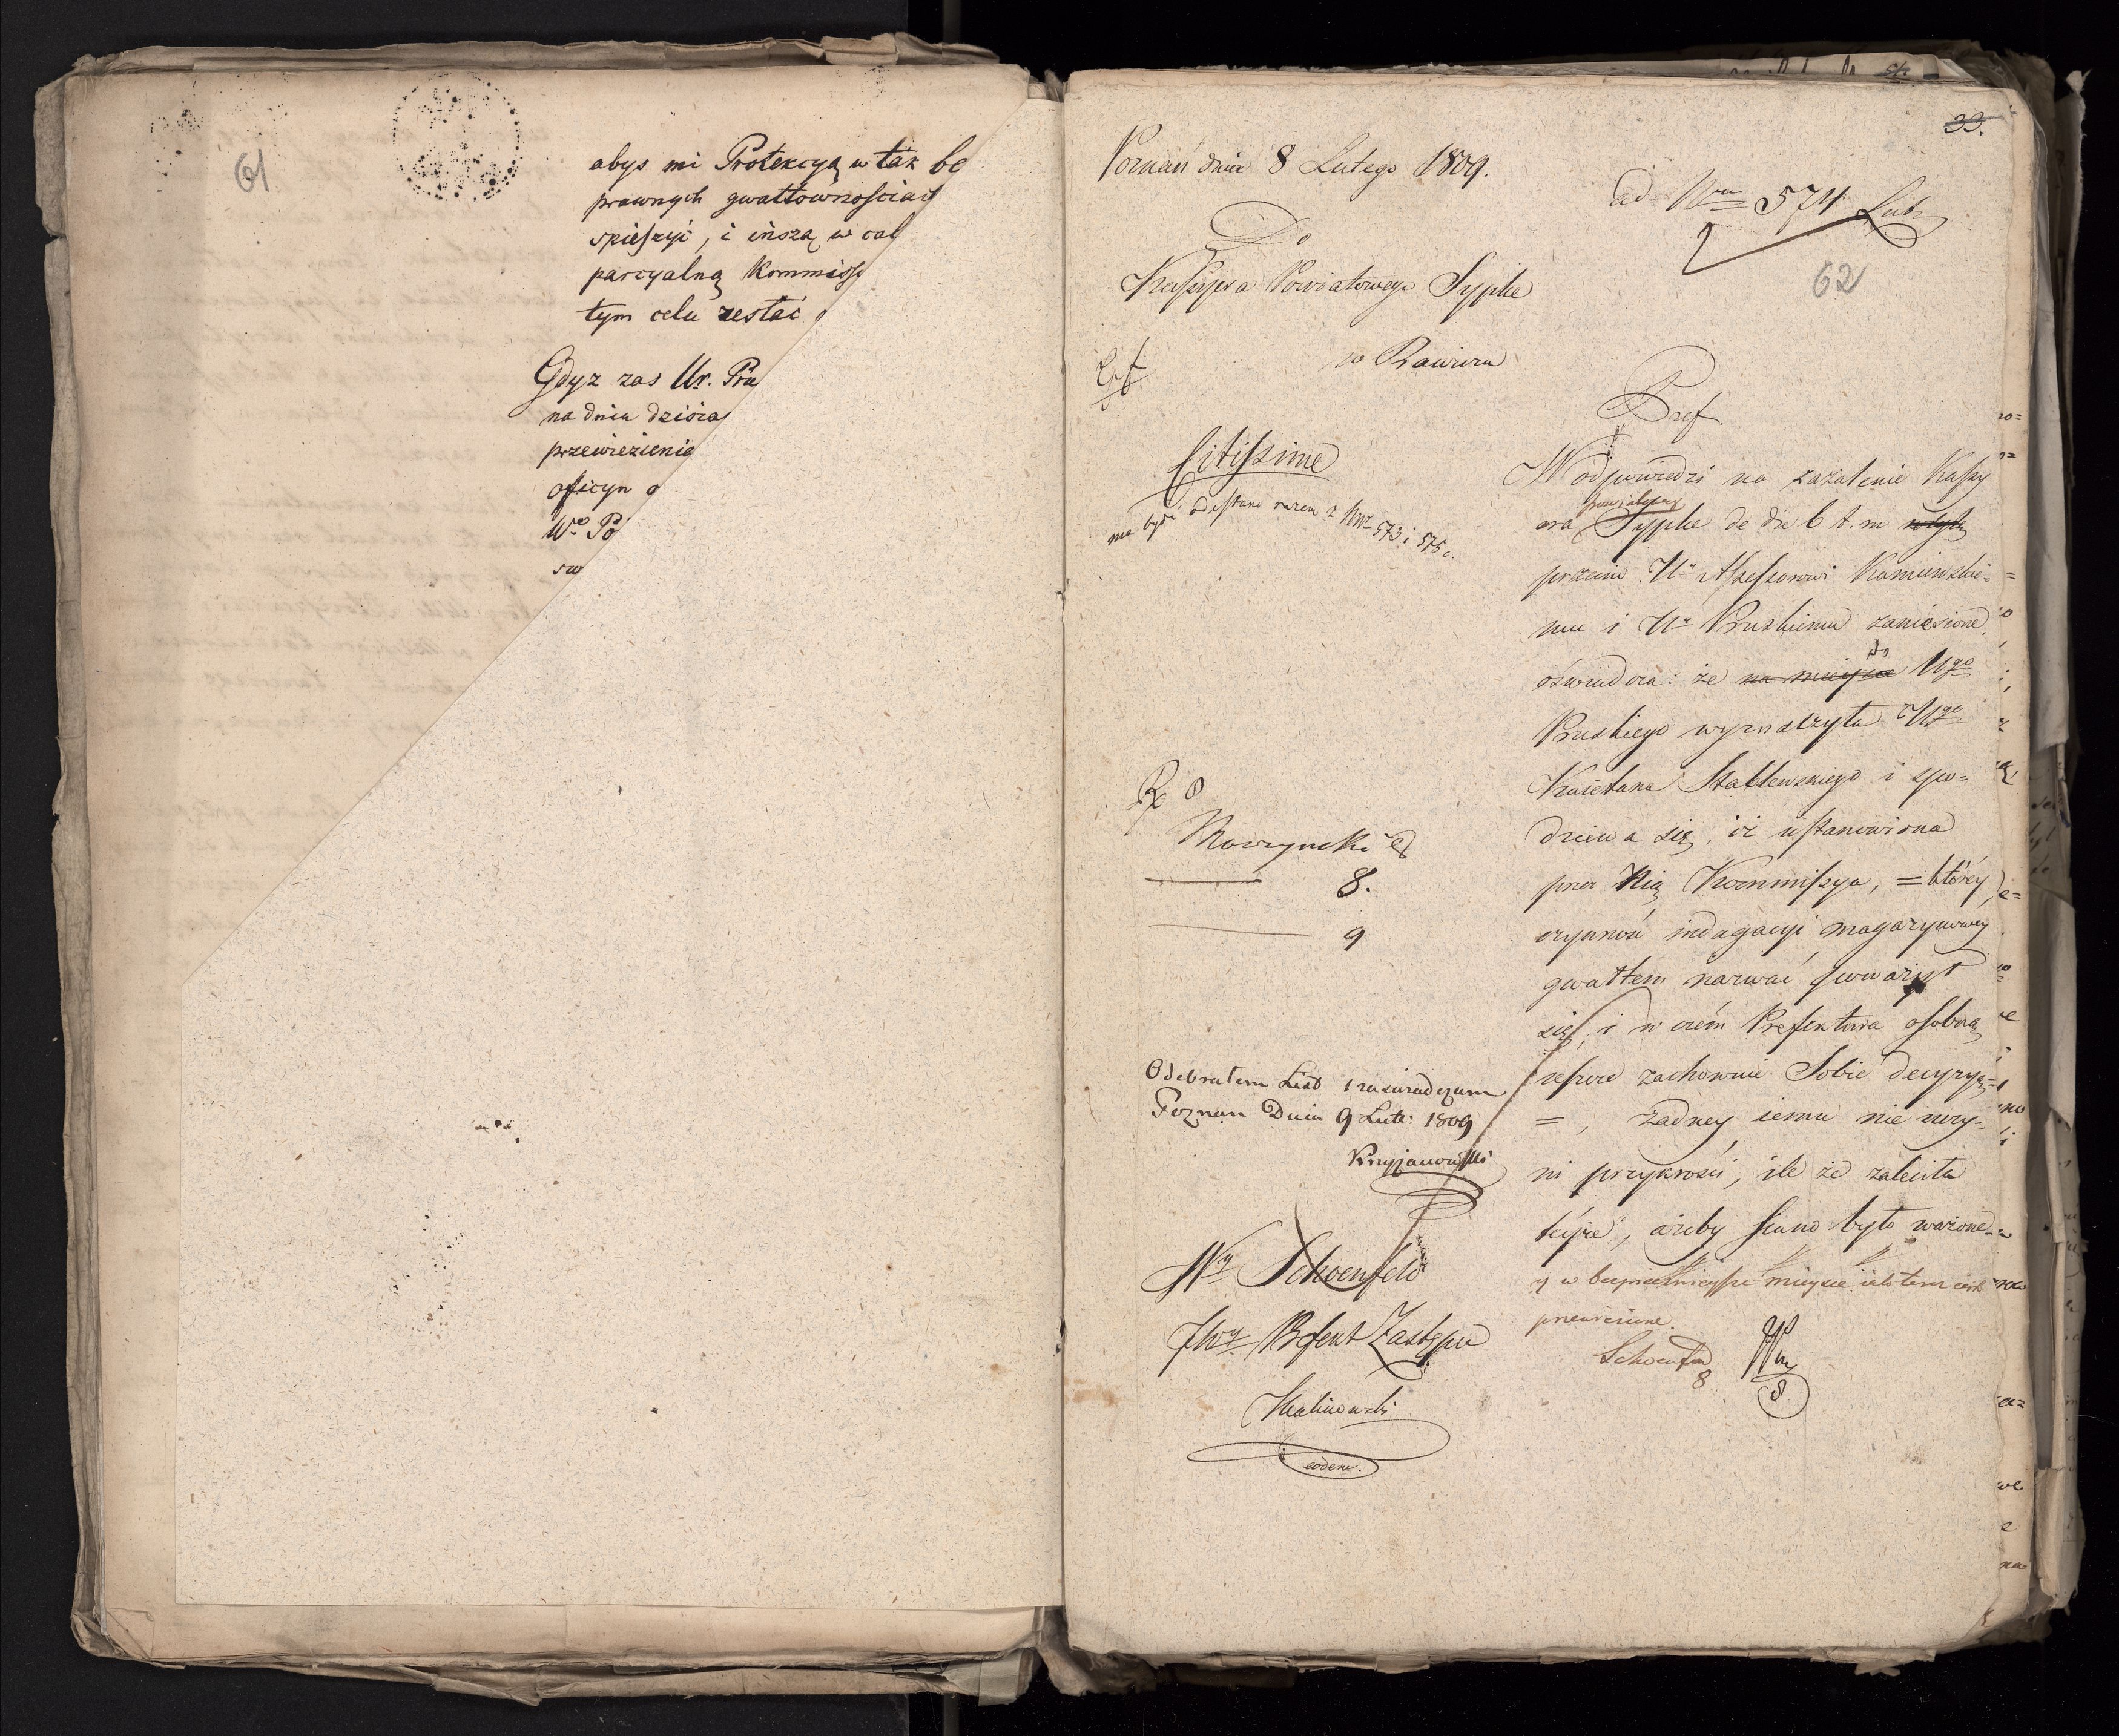 61
abys mi Protekcyą w tak be
prawnych gwałtownościach
spieszyć, i inszą w cal
parcyalną Kommiss
tym celu zesłać
Gdyz zas Ur. Pru
na dniu dzisia
przewiezienie
oficyn o
Wo Po
sw
33.
Poznań dnia 8 Lutego 1809.
ad Nrm 574 Lut.
62
Do
Kassyera Powiatowego Sypke
w Rawiczu
Citissime
ma bydź odesłane razem z Nr 573 i 575 c.
Pref
W odpowiedzi na zażalenie Kassy
era powiatowego Sypke de die 6 t. m
przeciw Ur Assessorowi Kamieńskie-
mu i Ur Pruskiemu zaniesione,
oświadcza: że na mieysce Ugo
Pruskiego wyznaczyła Ugo
Kaietana Stablewskiego i spo-
dziewa się, iż ustanowiona
przez Nią Kommissya, =którey
czynność indagacyi magazynowey
gwałtem nazwać poważył
się, i w czém Prefektura osobną
zachowuie Sobie decyzyą=
=, żadney iemu nie uczy-
ni przykrości, ile że zaleciła
teyże, ażeby siano było ważone
y w bezpiecznieysze mieysce
przewiezione.
Schoenfeld
8
8
Morzycki
8.
9
Odebrałem List i zaswiadczam
Poznan Dnia 9 Lute: 1809
Krzyzanowski
Wy Schoenfeld
JWy Prefekt Zastępu
Kalinowski
eodem.